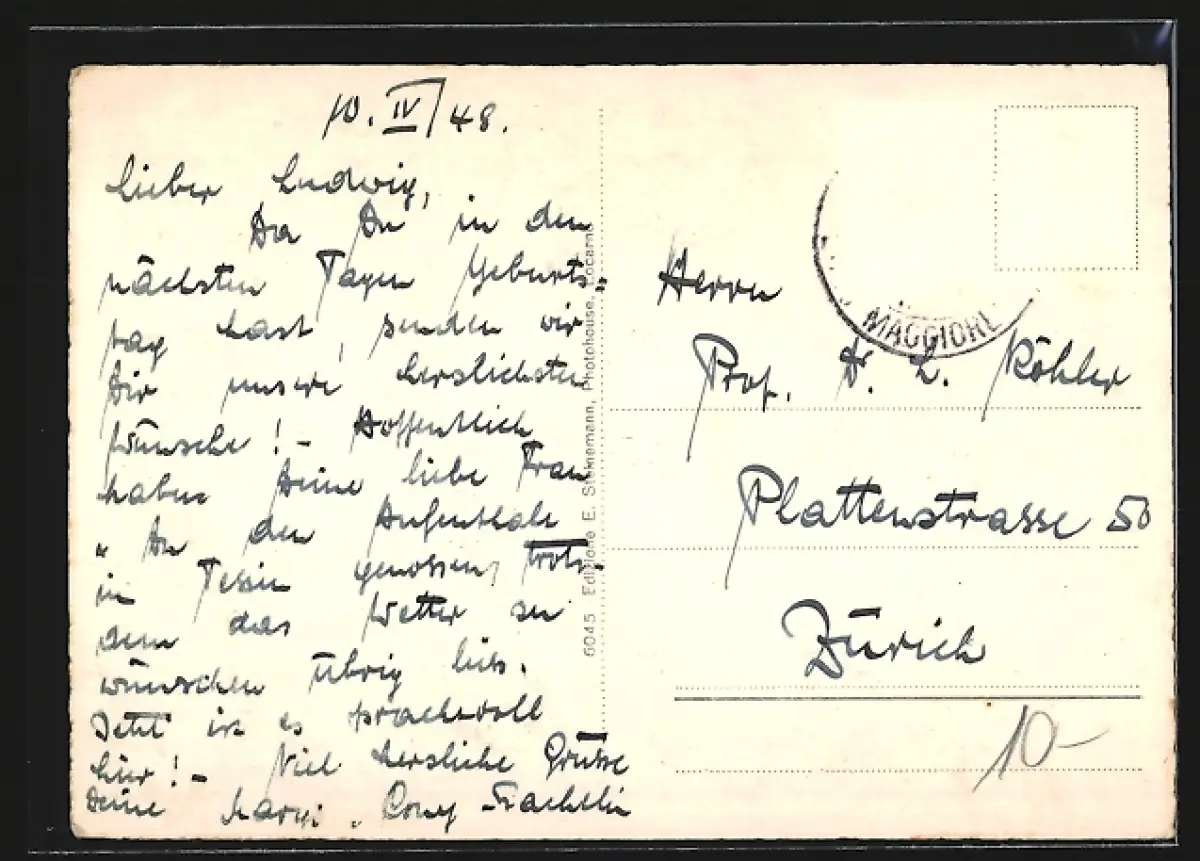 10. IV / 48.
Lieber Ludwig,
Da Du in den
nächsten Tagen Geburts=
tag hast, senden wir
Dir unsere herzlichsten
Wünsche! - Hoffentlich
haben Deine liebe Frau
u. Du den Aufenthalt
im Tessin genossen, trotz-
dem das Wetter zu
wünschen übrig liess.
Jetzt ist es prachtvoll
hier! - Viel herzliche Grüsse
Deine
6045 Edizione E. Steinemann, Photohouse, Locarno
MAGGIORE
Herrn
Prof. Dr. L. Köhler
Plattenstrasse 50
Zürich
10-